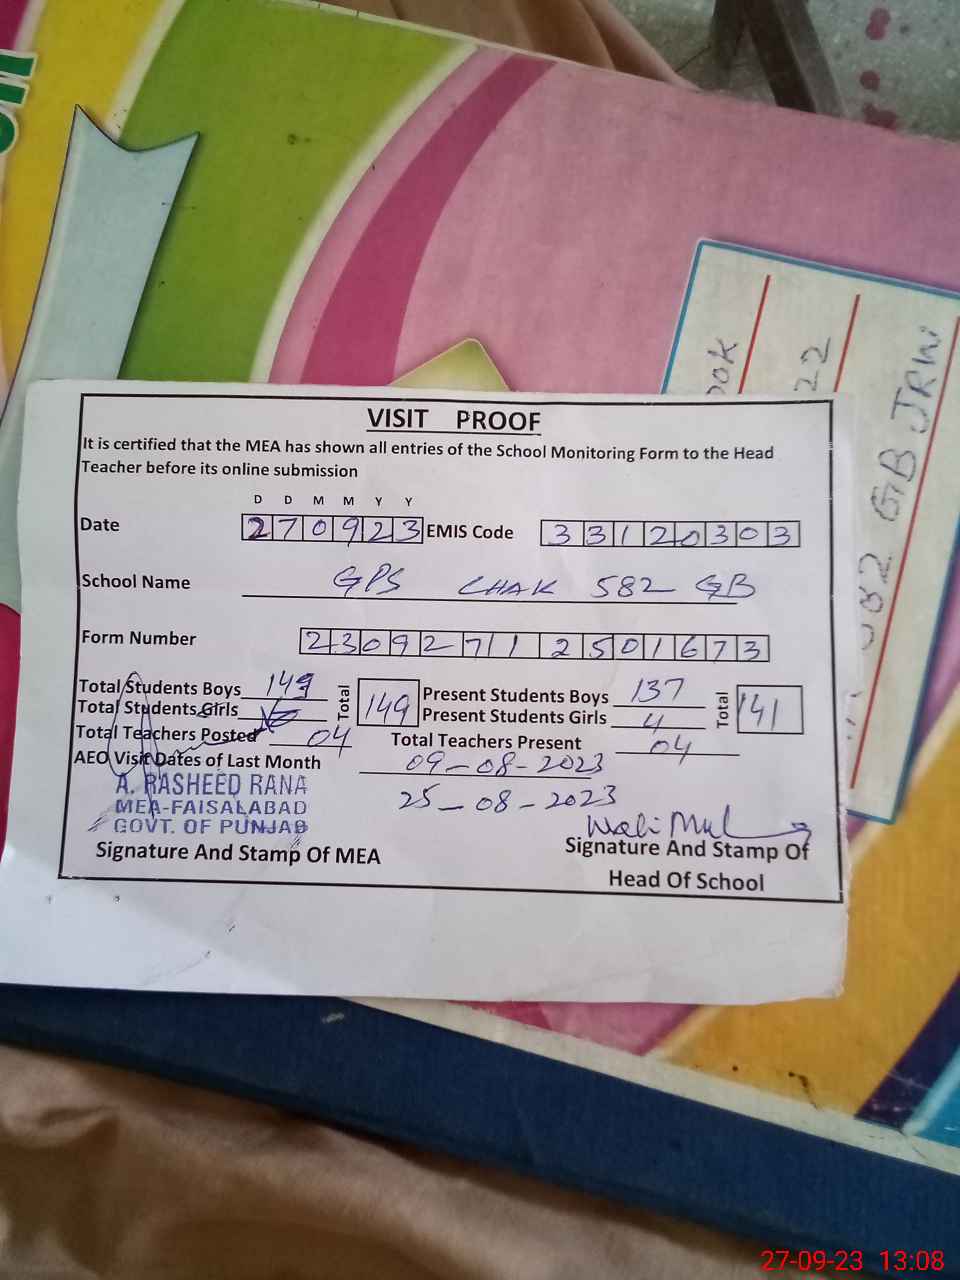 VISIT PROOF
It is certified that the MEA has shown all entries of the School Monitoring Form to the Head
Teacher before its online submission
D D M M Y Y
Date 270923 EMIS Code 33120303
School Name GPS CHAK 582 GB
Form Number 2309271 12501673
Total Students Boys Total 149 Present Students Boys 137 Total 141
Total Students Girls Present Students Girls 4
Total Teachers Posted 04 Total Teachers Present 04
AEO Visit Dates of Last Month 09-08-2023
25-08-2023
A. RASHEED RANA
MEA-FAISALABAD
GOVT. OF PUNJAB
Signature And Stamp Of MEA
Signature And Stamp Of
Head Of School
22
582 GB JRW
27-09-23 13:08